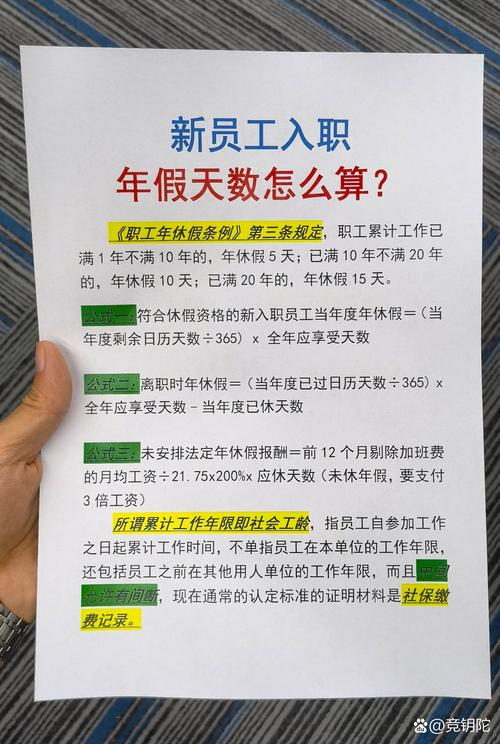 新员工入职
年假天数怎么算？
《职工年休假条例》第三条规定，职工累计工作已
满 1 年不满 10 年的，年休假 5 天；已满 10 年不满 20 年
的，年休假 10 天；已满 20 年的，年休假 15 天。
公式一：符合休假资格的新入职员工当年度年休假＝(当
年度剩余日历天数÷365) x 全年应享受天数
公式二：离职时年休假＝（当年度已过日历天数÷365）x
全年应享受天数－当年度已休天数
公式三：未安排法定年休假报酬＝前 12 个月剔除加班费
的月均工资÷21.75x200%x 应休天数（未休年假，要支付
3 倍工资）
所谓累计工作年限即社会工龄，指员工自参加工作
之日起累计工作时间，不单指员工在本单位的工作年限，
还包括员工之前在其他用人单位的工作年限，而且中间
允许有间断，现在通常的认定标准的证明材料是社保缴
费记录。
百度@竞钥陀